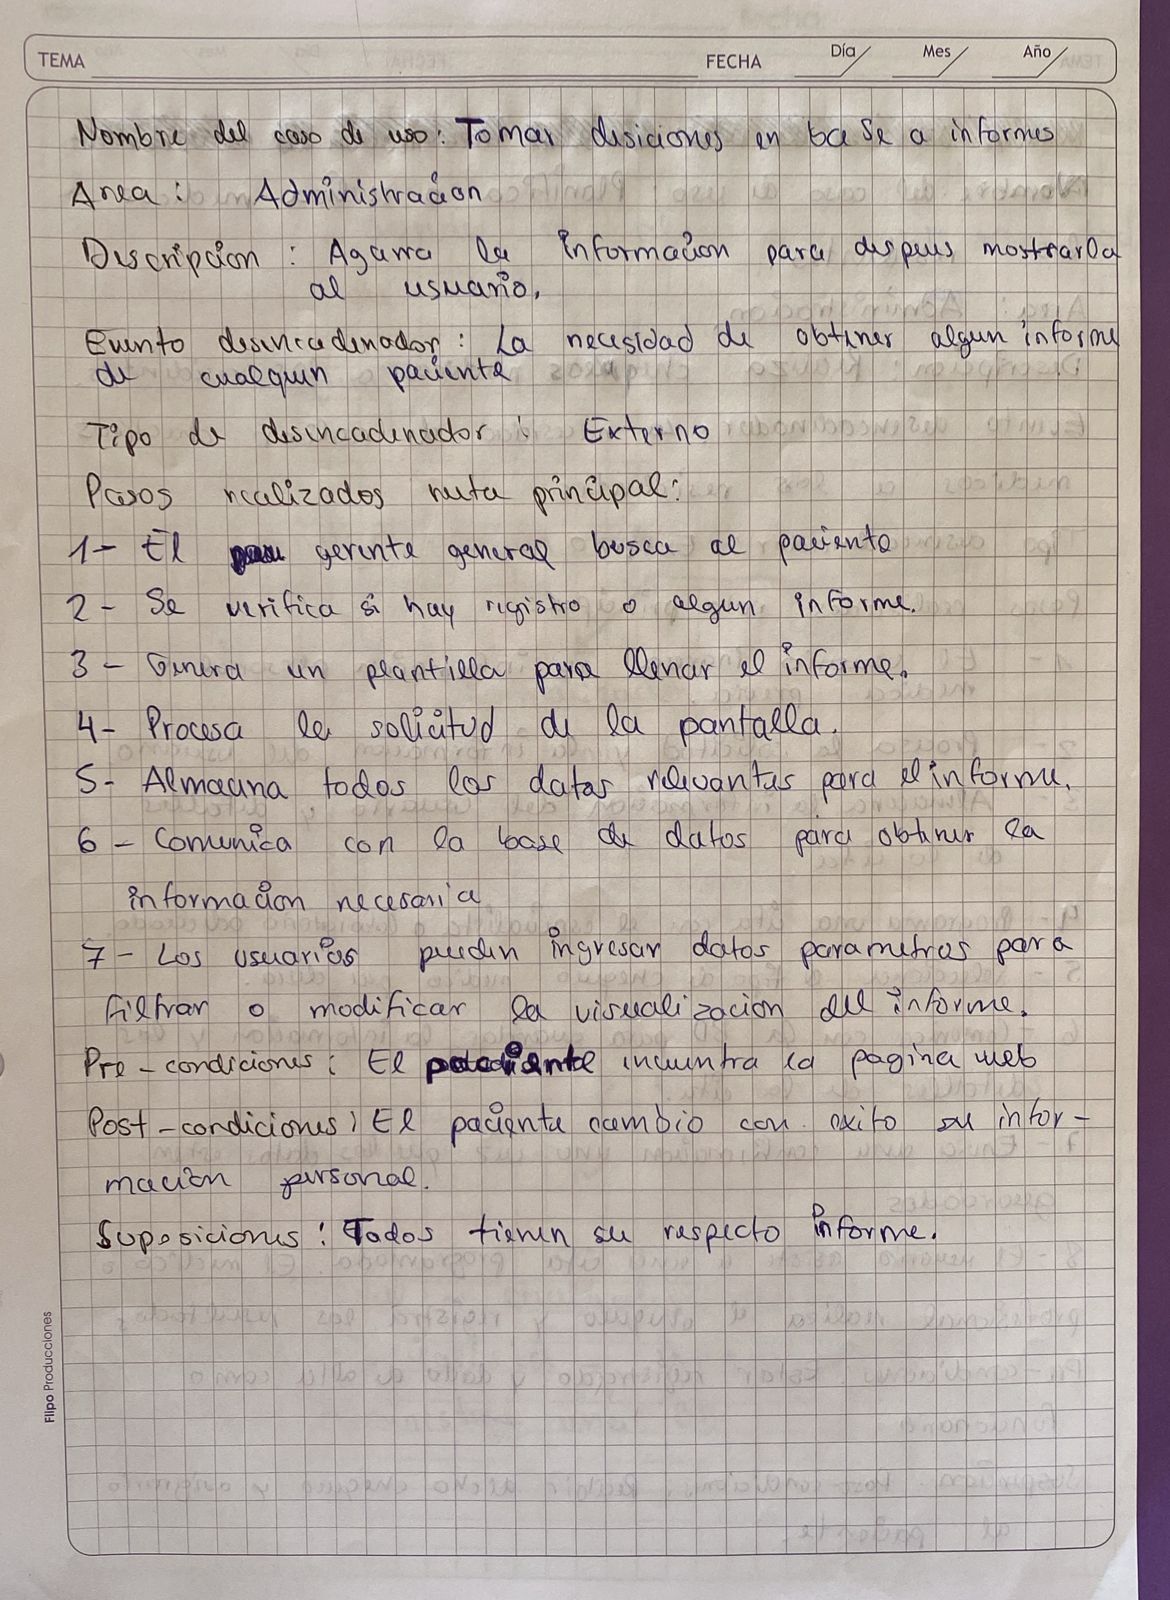 TEMA FECHA Día Mes Año
Nombre del caso de uso: Tomar desiciones en base a informes
Area: Administracion
Descripcion: Agarra la informacion para despues mostrarla
al usuario.
Evento desencadenador: La necesidad de obtener algun informe
de cualquien paciente
Tipo de desencadenador: Externo
Pasos realizados ruta principal:
1- El gerente general busca al paciente
2- Se verifica si hay registro o algun informe.
3- Genera un plantilla para llenar el informe.
4- Procesa la solicitud de la pantalla.
5- Almacena todos los datos relevantes para el informe.
6- Comunica con la base de datos para obtener la
informacion necesaria
7- Los usuarios pueden ingresar datos parametros para
filtrar o modificar la visualizacion del informe.
Pre-condiciones: El paciente encuentra la pagina web
Post-condiciones: El paciente cambio con exito su infor-
macion personal.
Suposiciones: Todos tienen su respecto informe.
Flipo Producciones